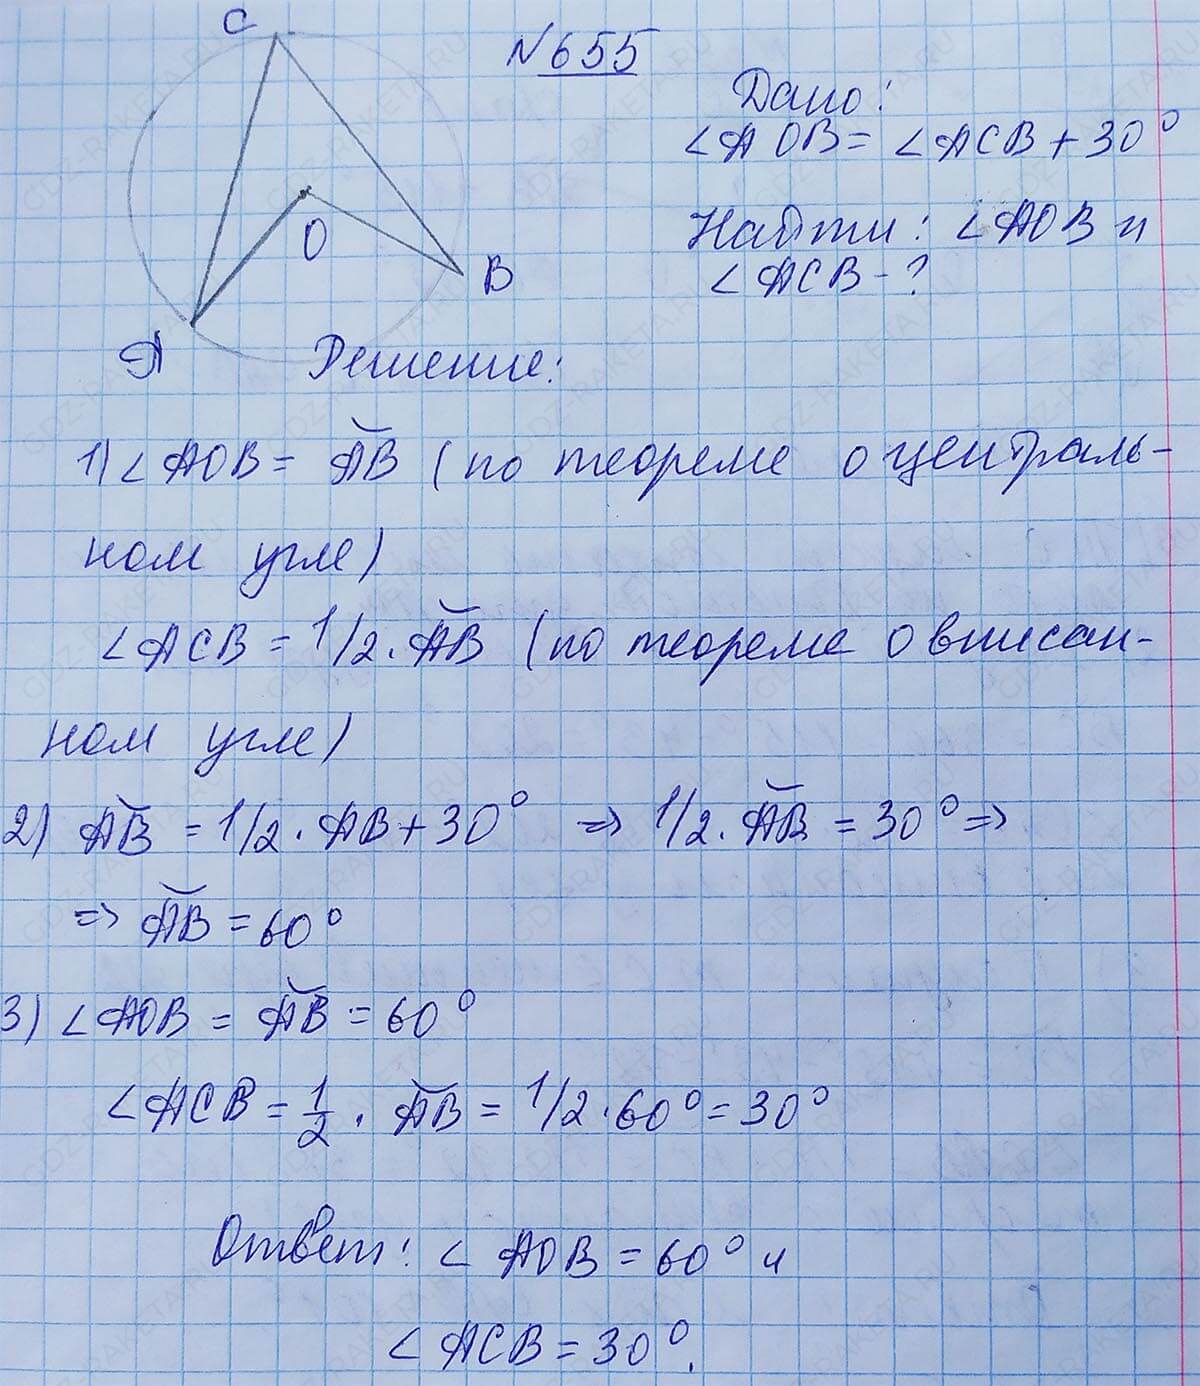 C
№655
Дано:
∠AOB = ∠ACB + 30°
O
Найти: ∠AOB и
B
∠ACB - ?
A
Решение:
1) ∠AOB = A͝B (по теореме о централь-
ном угле)
∠ACB = 1/2 · A͝B (по теореме о вписан-
ном угле)
2) A͝B = 1/2 · AB + 30° => 1/2 · A͝B = 30° =>
=> A͝B = 60°
3) ∠AOB = A͝B = 60°
∠ACB = 1/2 · A͝B = 1/2 · 60° = 30°
Ответ: ∠AOB = 60° и
∠ACB = 30°.